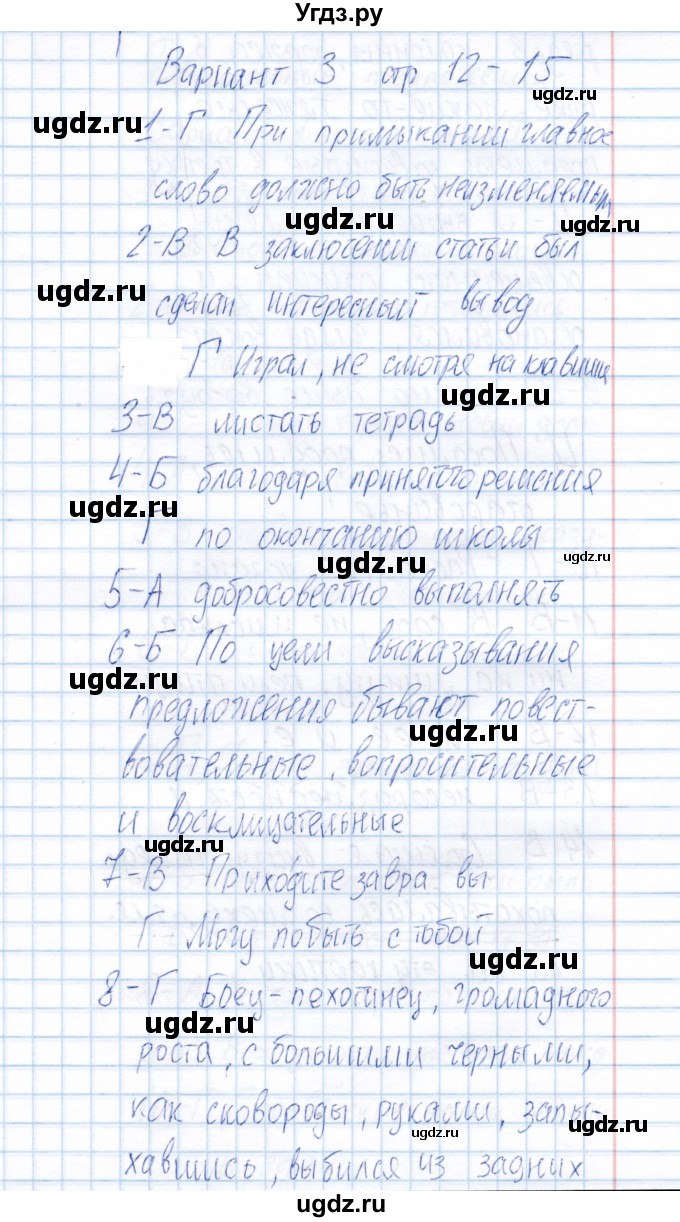 Угдз.ру
Вариант 3 стр 12-15
ugdz.ru
ugdz.ru
1-Г При примыкании главное
слово должно быть неизменяемым
ugdz.ru
ugdz.ru
2-В В заключении статьи был
ugdz.ru
ugdz.ru
сделан интересный вывод
Г Играл, не смотря на клавиши
ugdz.ru
3-В листать тетрадь
4-Б благодаря принятого решения
ugdz.ru
Г по окончанию школы
ugdz.ru
ugdz.ru
5-А добросовестно выполнять
6-Б По цели высказывания
ugdz.ru
ugdz.ru
предложения бывают повест-
ugdz.ru
вовательные, вопросительные
и восклицательные
ugdz.ru
7-В Приходите завра вы
ugdz.ru
Г Могу побыть с тобой
ugdz.ru
8-Г Боец-пехотинец, громадного
ugdz.ru
роста, с большими черными,
как сковороды, руками, запы-
ugdz.ru
ugdz.ru
хавшись, выбился из задних
ugdz.ru